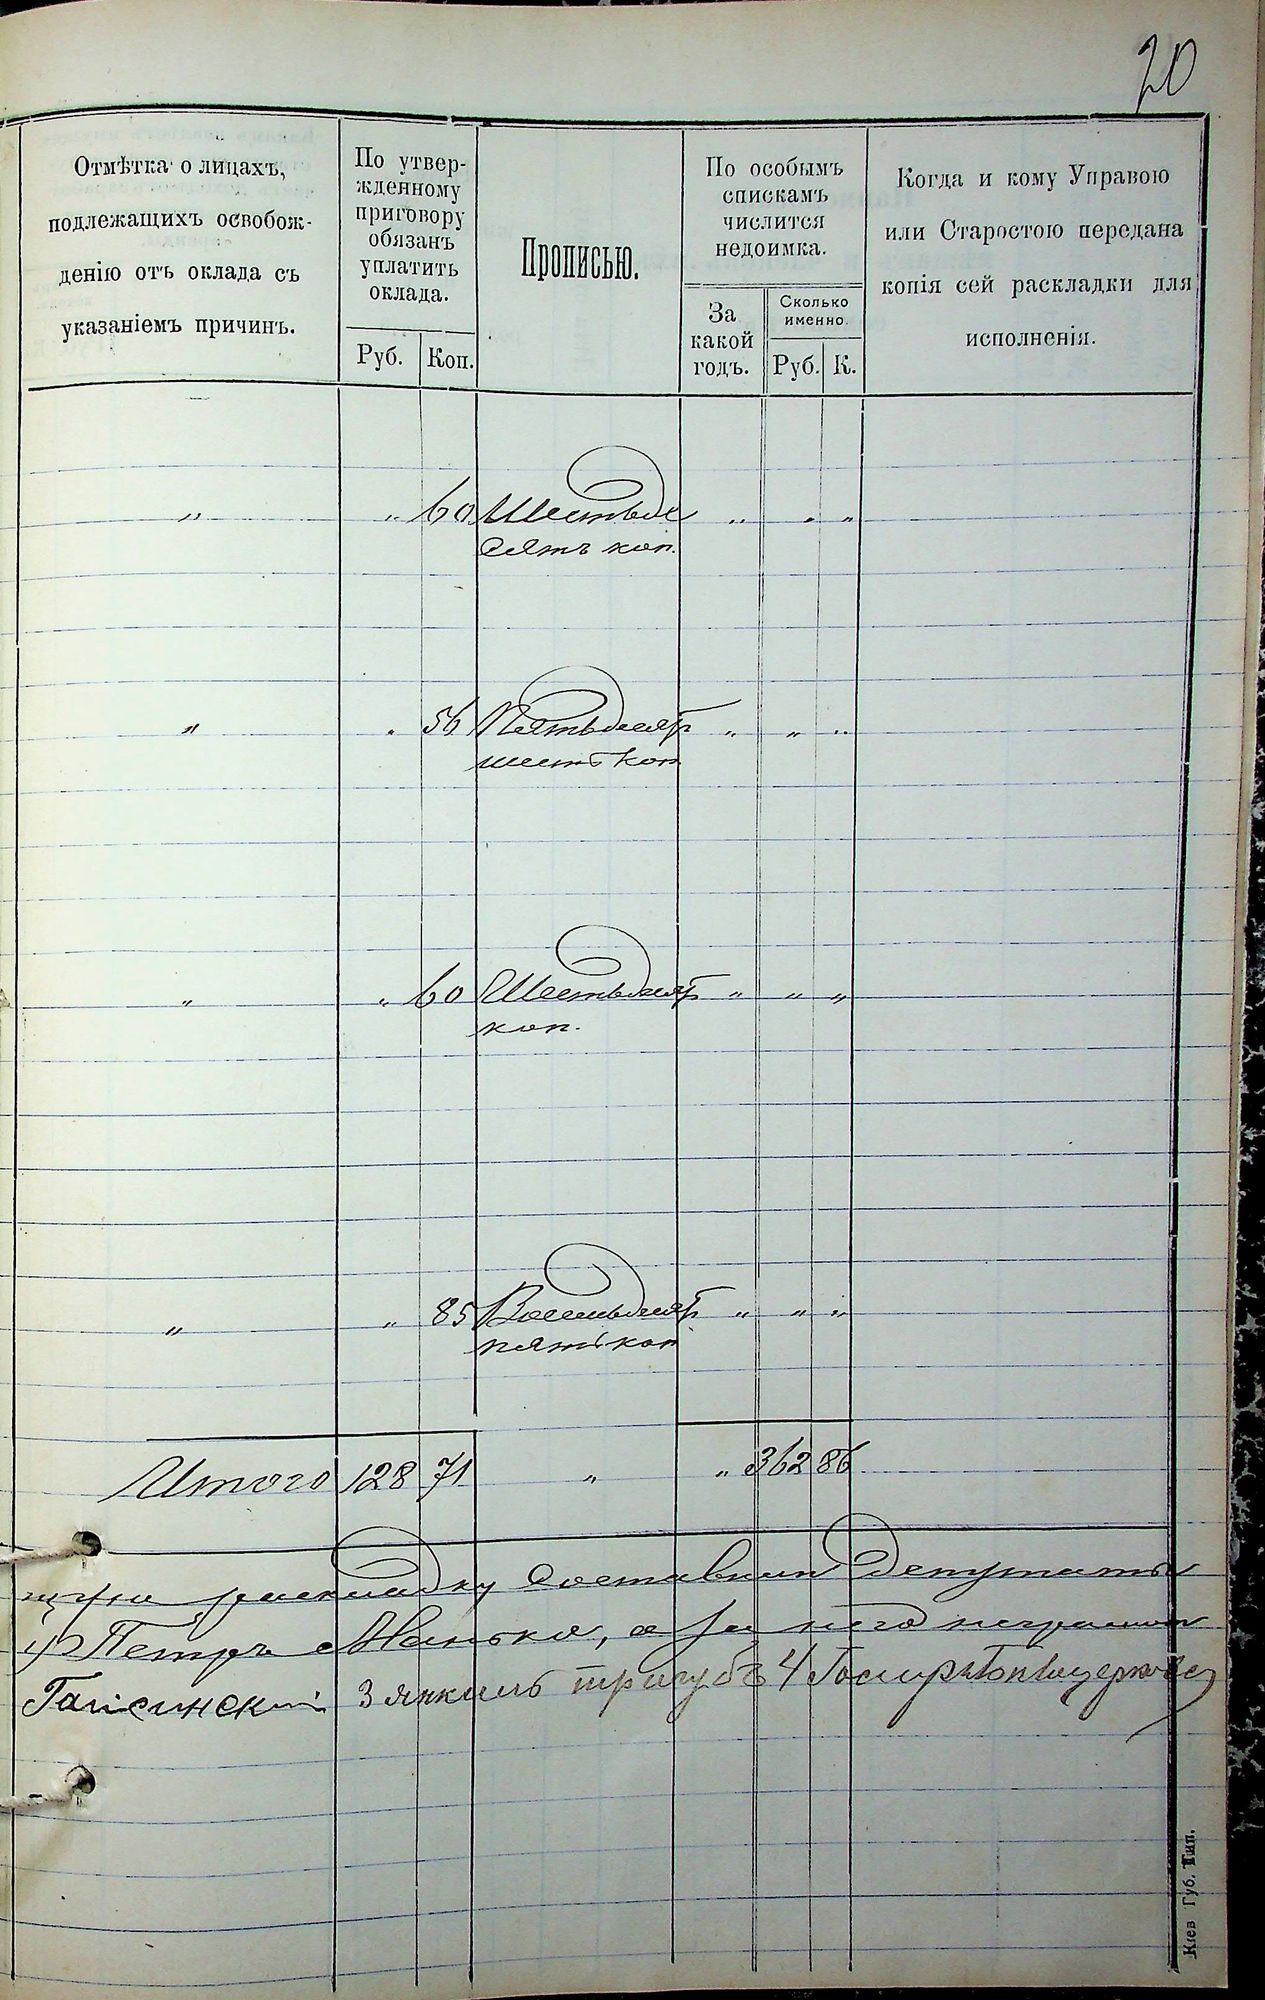 20
Отмѣтка о лицахъ,
подлежащихъ освобож-
денію отъ оклада съ
указаніемъ причинъ.
По утвер-
жденному
приговору
обязанъ
уплатить
оклада.
Руб. Коп.
Прописью.
По особымъ
спискамъ
числится
недоимка.
За
какой
годъ.
Сколько
именно.
Руб. К.
Когда и кому Управою
или Старостою передана
копія сей раскладки для
исполненія.
„ „ 60 Шестьде „ „ „
сятъ коп.
„ „ 56 Пятьдесят „ „ „
шесть коп
„ „ 60 Шестьдесят „ „ „
коп.
„ „ 85 Восемьдесят „ „ „
пять коп
Итого 128 71 „ „ 362 86
раскладку составили Депутаты
Петръ Манько, а за него неграмот
Гайсинский 3 Янкель тригубъ 4
Кіев Губ. Тип.